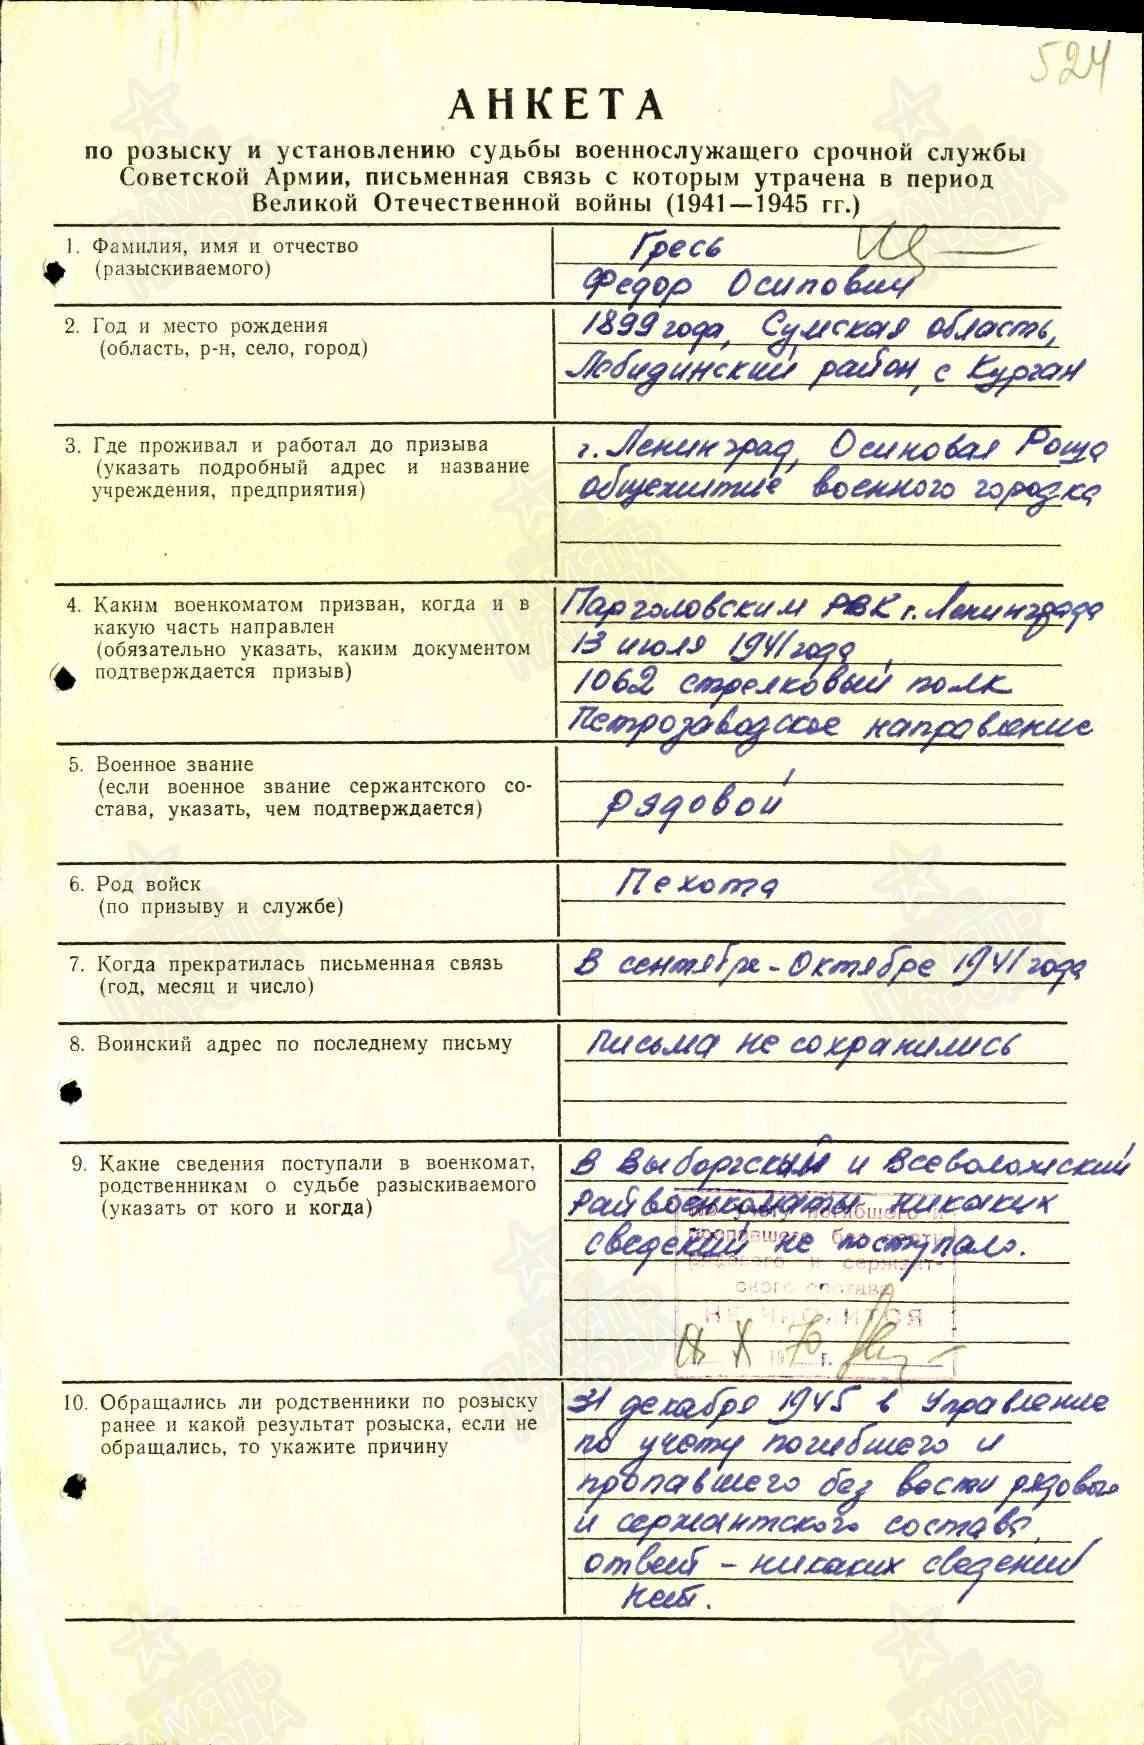 524
АНКЕТА
по розыску и установлению судьбы военнослужащего срочной службы
Советской Армии, письменная связь с которым утрачена в период
Великой Отечественной войны (1941—1945 гг.)
1. Фамилия, имя и отчество
(разыскиваемого)
Гресь
Федор Осипович
2. Год и место рождения
(область, р-н, село, город)
1899 года, Сумская область,
Лебидинский район, с Курган
3. Где проживал и работал до призыва
(указать подробный адрес и название
учреждения, предприятия)
г. Ленинград, Осиновая Роща
общежитие военного городка
4. Каким военкоматом призван, когда и в
какую часть направлен
(обязательно указать, каким документом
подтверждается призыв)
Парголовским РВК г. Ленинграда
13 июля 1941 года,
1062 стрелковый полк
Петрозаводское направление
5. Военное звание
(если военное звание сержантского со-
става, указать, чем подтверждается)
рядовой
6. Род войск
(по призыву и службе)
Пехота
7. Когда прекратилась письменная связь
(год, месяц и число)
В сентябре - Октябре 1941 года
8. Воинский адрес по последнему письму
Письма не сохранились
9. Какие сведения поступали в военкомат,
родственникам о судьбе разыскиваемого
(указать от кого и когда)
В Выборгский и Всеволожский
Райвоенкоматы никаких
сведений не поступало.
По учету погибшего и
пропавшего без вести
рядового и сержант-
ского состава
НЕ ЧИСЛИТСЯ
X 1970 г.
10. Обращались ли родственники по розыску
ранее и какой результат розыска, если не
обращались, то укажите причину
31 декабря 1945 в Управление
по учету погибшего и
пропавшего без вести рядового
и сержантского состава,
ответ - никаких сведений
нет.
ПАМЯТЬ
НАРОДА